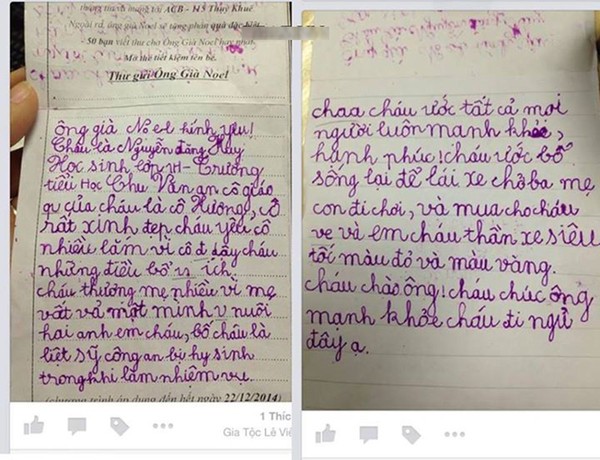 thông tin từ trang tới ACB - 115 Thụy Khuê.
Ngoài ra, ông già Noel sẽ tặng phần quà đặc biệt
50 bạn viết thư cho Ông Già Noel hay nhất.
Mở thẻ tiết kiệm tên bé.
Thư gửi Ông Già Noel
ông già Noel kính yêu!
Cháu là Nguyễn đăng Huy
Học sinh lớp 1H - Trường
tiểu Học Chu Văn an cô giáo
của cháu là cô Hương, cô
rất xinh đẹp cháu yêu cô
nhiều lắm vì cô dậy cháu
những điều bổ ích.
cháu thương mẹ nhiều vì mẹ
vất vả một mình nuôi
hai anh em cháu, bố cháu là
liệt sỹ công an bị hy sinh
trong khi làm nhiệm vụ.
(chương trình áp dụng đến hết ngày 22/12/2014)
1 Thíc
Gia Tộc Lê Viê
cháu ước tất cả mọi
người luôn mạnh khỏe,
hạnh phúc! cháu ước bố
sống lại để lái xe chở ba mẹ
con đi chơi, và mua cho cháu
ve và em cháu thần xe siêu
tốc màu đỏ và màu vàng.
cháu chào ông! cháu chúc ông
mạnh khỏe cháu đi ngủ
đây ạ.